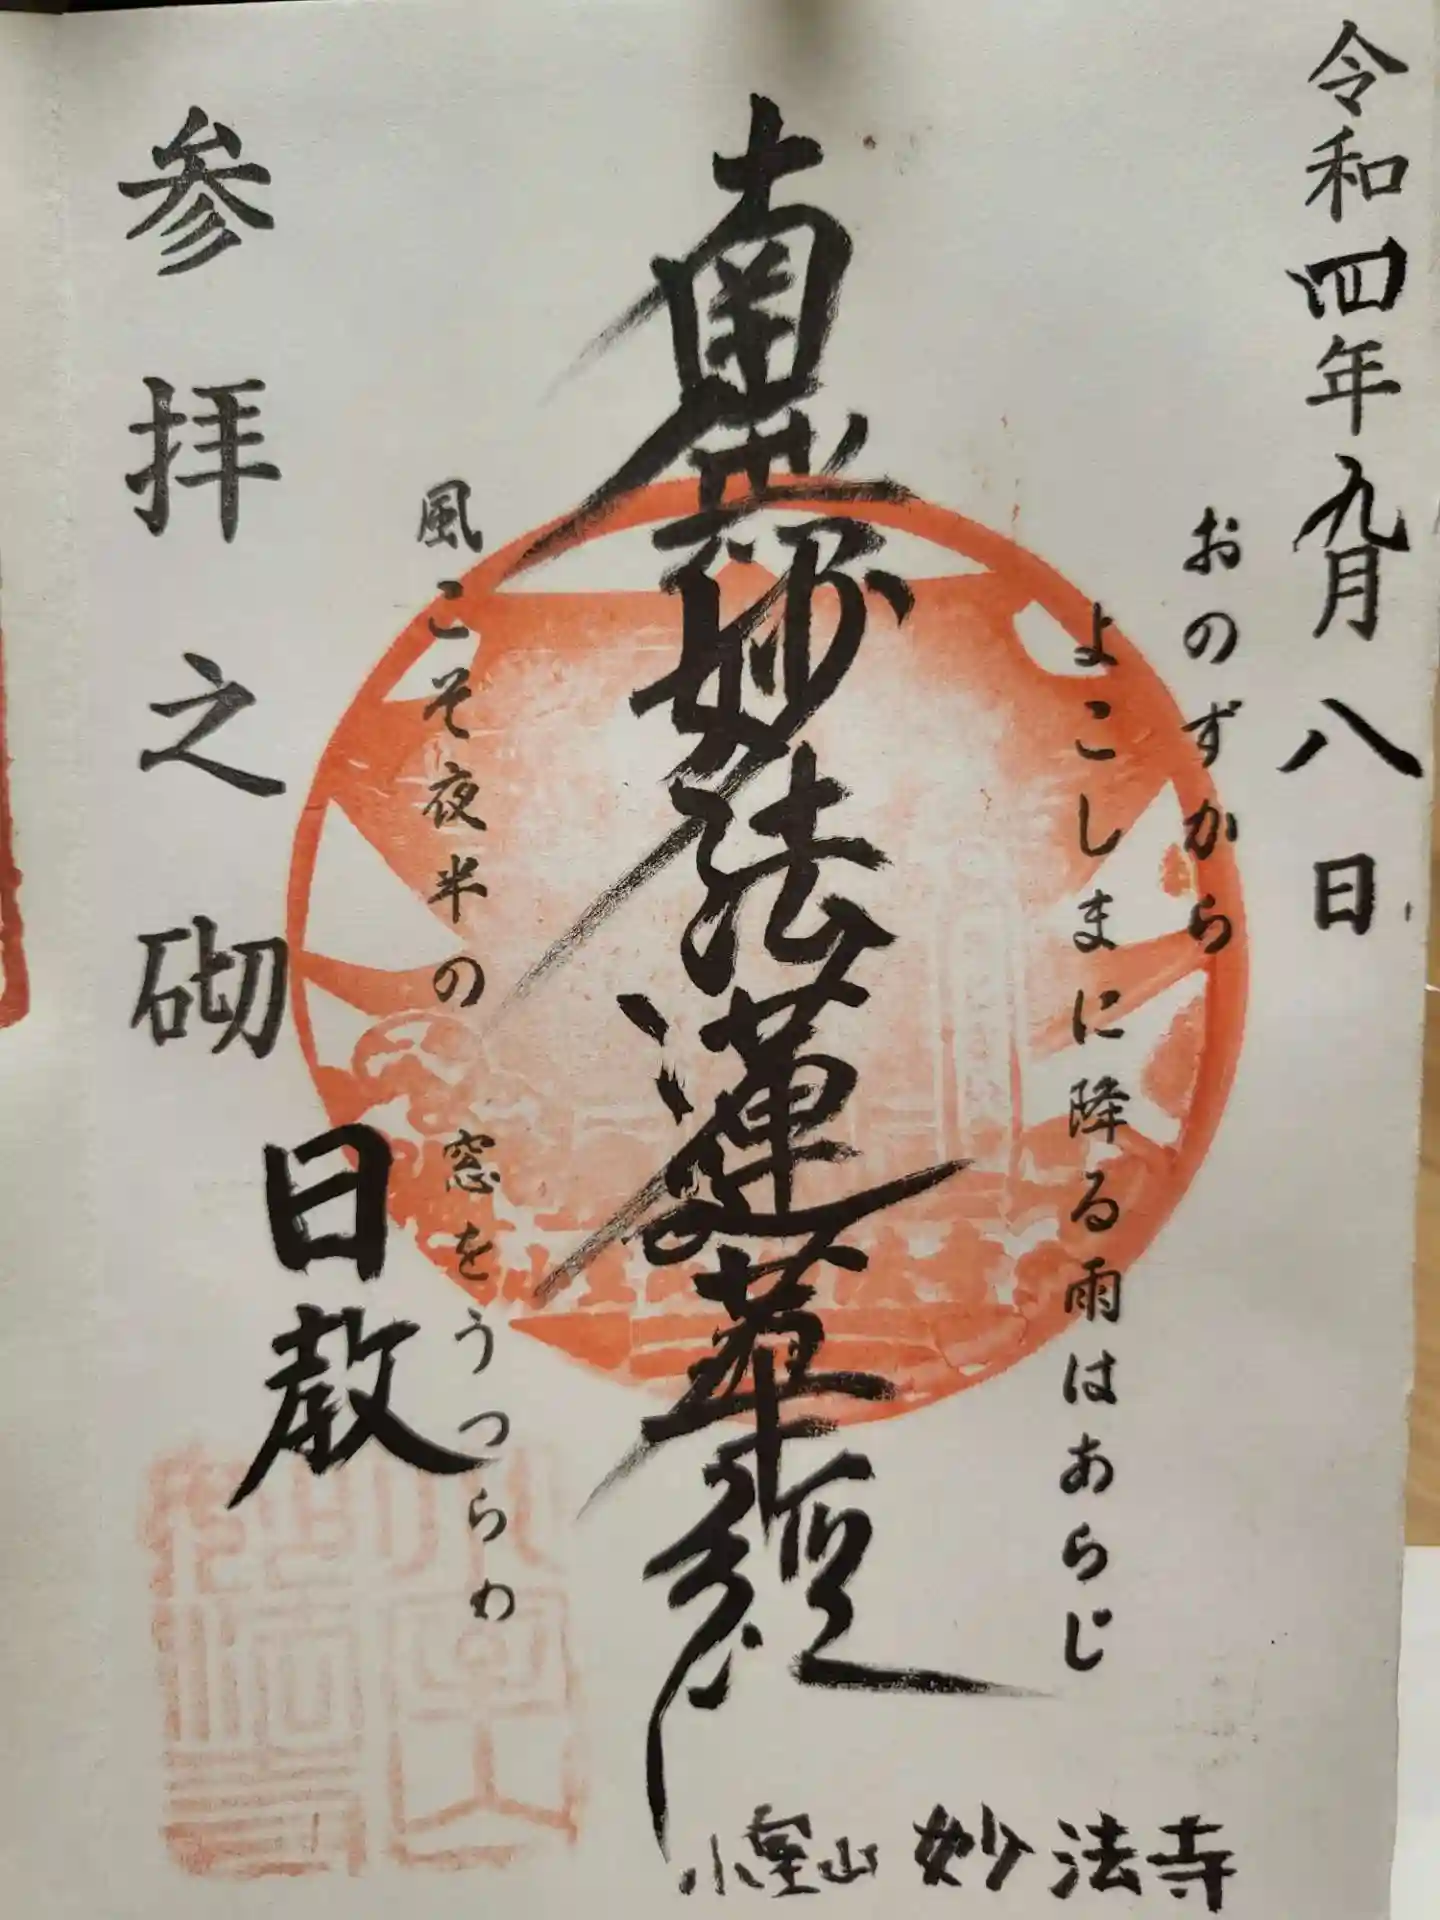 令和四年九月八日
おのずから
よこしまに降る雨はあらじ
南無妙法蓮華経
風こそ夜半の
窓をうつらめ
参拝之砌
日教
小室山 妙法寺
小室山
妙法寺